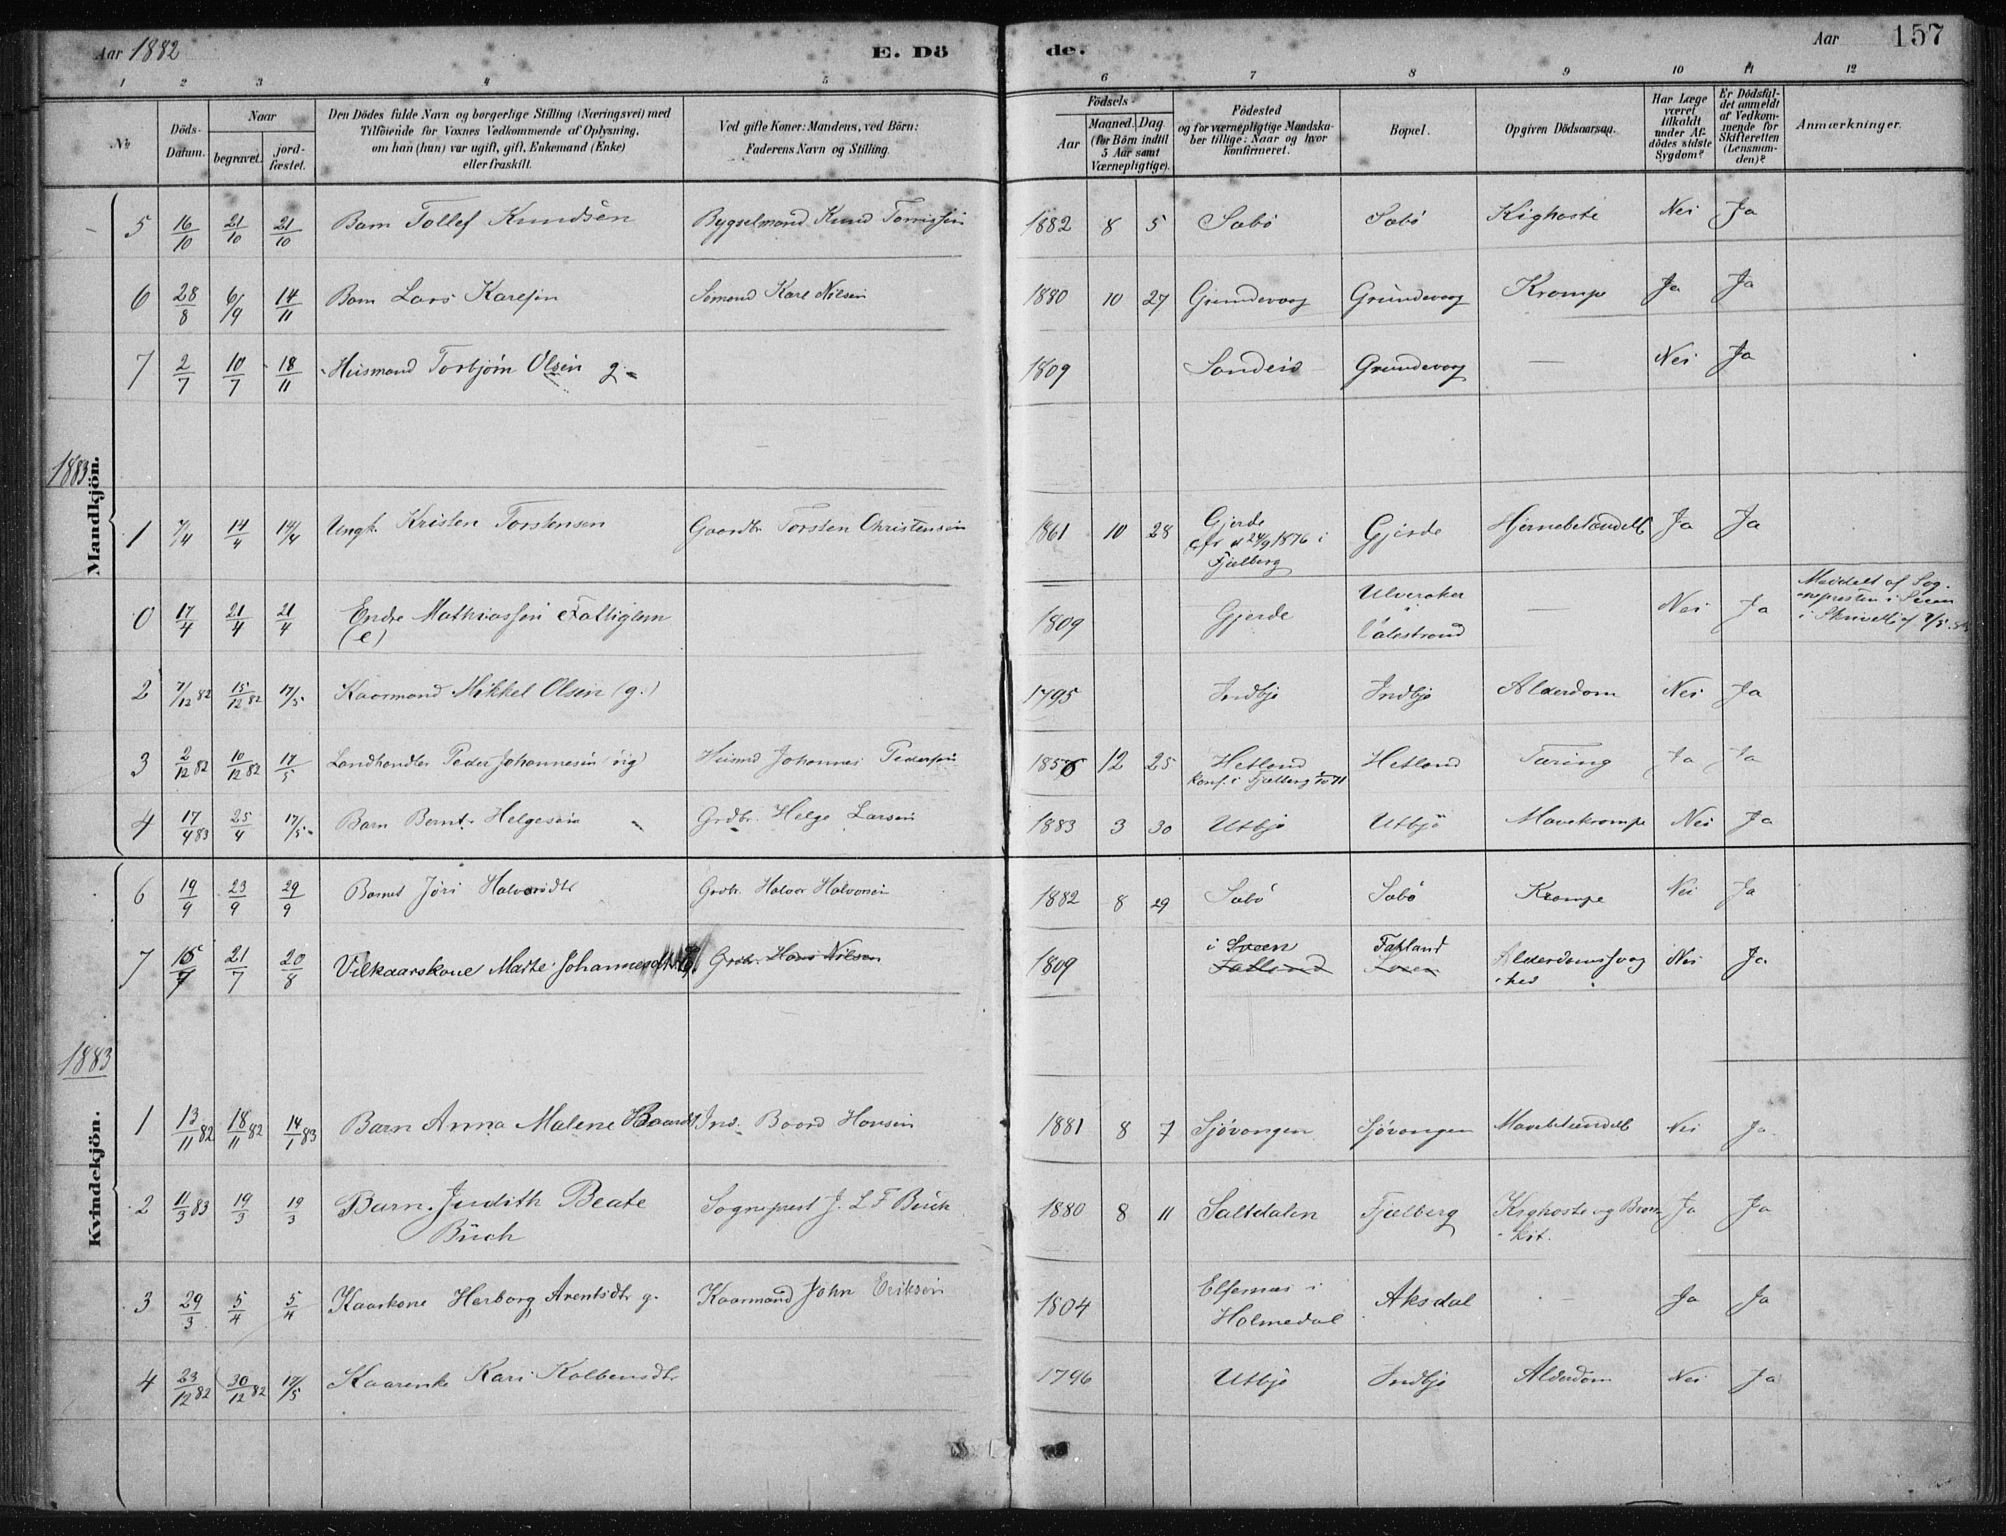 Aar 1882 E. Dö de. Aar 157
1 2 3 4 5 6 7 8 9 10 11 12
No
Döds-Datum.
Naar
begravet.
jord-fæstet.
Den Dödes fulde Navn og borgerlige Stilling (Næringsvei) med
Tilföiende for Voxnes Vedkommende af Oplysning,
om han (hun) var ugift, gift, Enkemand (Enke)
eller fraskilt.
Ved gifte Koner: Mandens, ved Börn:
Faderens Navn og Stilling.
Födsels-
Aar
Maaned. Dag
(for Börn indtil
5 Aar samt
Værnepligtige).
Födested
og for værnepligtige Mandska-
ber tillige: Naar og hvor
konfirmeret.
Bopæl.
Opgiven Dödsaarsag.
Har Læge
været
tilkaldt
under Af-
dödes sidste
Sygdom?
Er Dödsfal-
det anmeldt
af Vedkom-
mende for
Skifteretten
(Lensman-
den)?
Anmærkninger.
Mandkjön.
5 16/10 21/10 21/10 Barn Tollef Knudsen Bygselmand Knud 1882 8 5 Sæbö Sæbö Kighoste Nei Ja
6 28/8 6/9 14/11 Barn Lars Karlsen Sømand Karl Nilsen 1880 10 27 Grundevaag Grundevaag Krampe Ja Ja
7 2/7 10/7 18/11 Husmand Torbjörn Olsen g. 1809 Sandeid Grundevaag — Nei Ja
1883
1 7/4 14/4 14/4 Ungk. Kristen Torstensen Gaardbr. Torsten Christensen 1861 10 28 Gjerde
24/9 1876 i
Fjælberg Gjerde Hjernebetændelse Ja Ja
0 17/4 21/4 21/4 Endre Mathiassen Fattiglem
(e) 1809 Gjerde Ulveraker
i
Valestrand — Nei Ja Meddelt af Sog-
nepresten i Sveen
i Skrivelse af
2 7/12 82 15/12 82 17/5 Kaarmand Mikkel Olsen (g.) 1795 Indbjo Indbjo Alderdom Nei Ja
3 2/12 82 10/12 82 17/5 Landhandler Peder Johannesen (ug) Husmd Johannes Pedersen 1856 12 25 Hetland
Konf. i Fjælberg Hetland Tæring Ja Ja
4 17/4 83 25/4 17/5 Barn Bernt Helgesen Grdbr. Helge Larsen 1883 3 30 Utbjo Utbjö Mavekrampe Nei Ja
Kvindekjön.
6 19/9 23/9 29/9 Barnet Jöri Halvorsdtr Grdbr. Halvor Halvorsen 1882 8 29 Sæbö Sæbö Krampe Nei Ja
7 15/7 21/7 20/8 Vilkaarskone Marte Johannesdtr Grdbr. Hans Nilsen 1809 i Sveen
Fatland Fatland
Sveen Alderdomssvag
hed Nei Ja
1883
1 13/11 82 18/11 82 14/1 83 Barn Anna Malene Baardsd. Ind. Baard Hansen 1881 8 7 Sjövangen Sjövangen Mavebetændelse Nei Ja
2 11/3 83 19/3 19/3 Barn Judith Beate
Büch Sogneprest J. L F Büch 1880 8 11 Saltdalen Fjælberg Kighoste og Bron
kit. Ja Ja
3 29/3 5/4 5/4 Kaarkone Herborg Arentsdtr g. Kaarmand John Eriksen 1804 Elfernæs i
Holmedal Aksdal — Ja Ja
4 23/12 82 30/12 82 17/5 Kaarenke Kari Kolbensdtr 1796 Utbjo Indbjo Alderdom Nei Ja